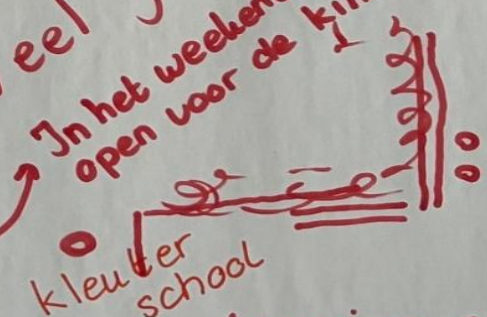 eel
In het weekend
open voor de
kleuter
school